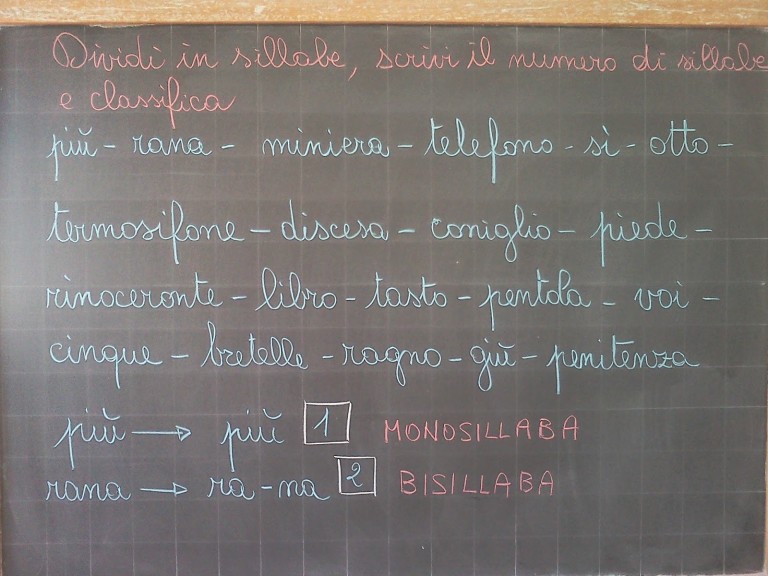 Dividi in sillabe, scrivi il numero di sillabe
e classifica
più - rana - miniera - telefono - sì - otto -
termosifone - discesa - coniglio - piede -
rinoceronte - libro - tasto - pentola - voi -
cinque - bretelle - ragno - giù - penitenza
più → più 1 MONOSILLABA
rana → ra-na 2 BISILLABA